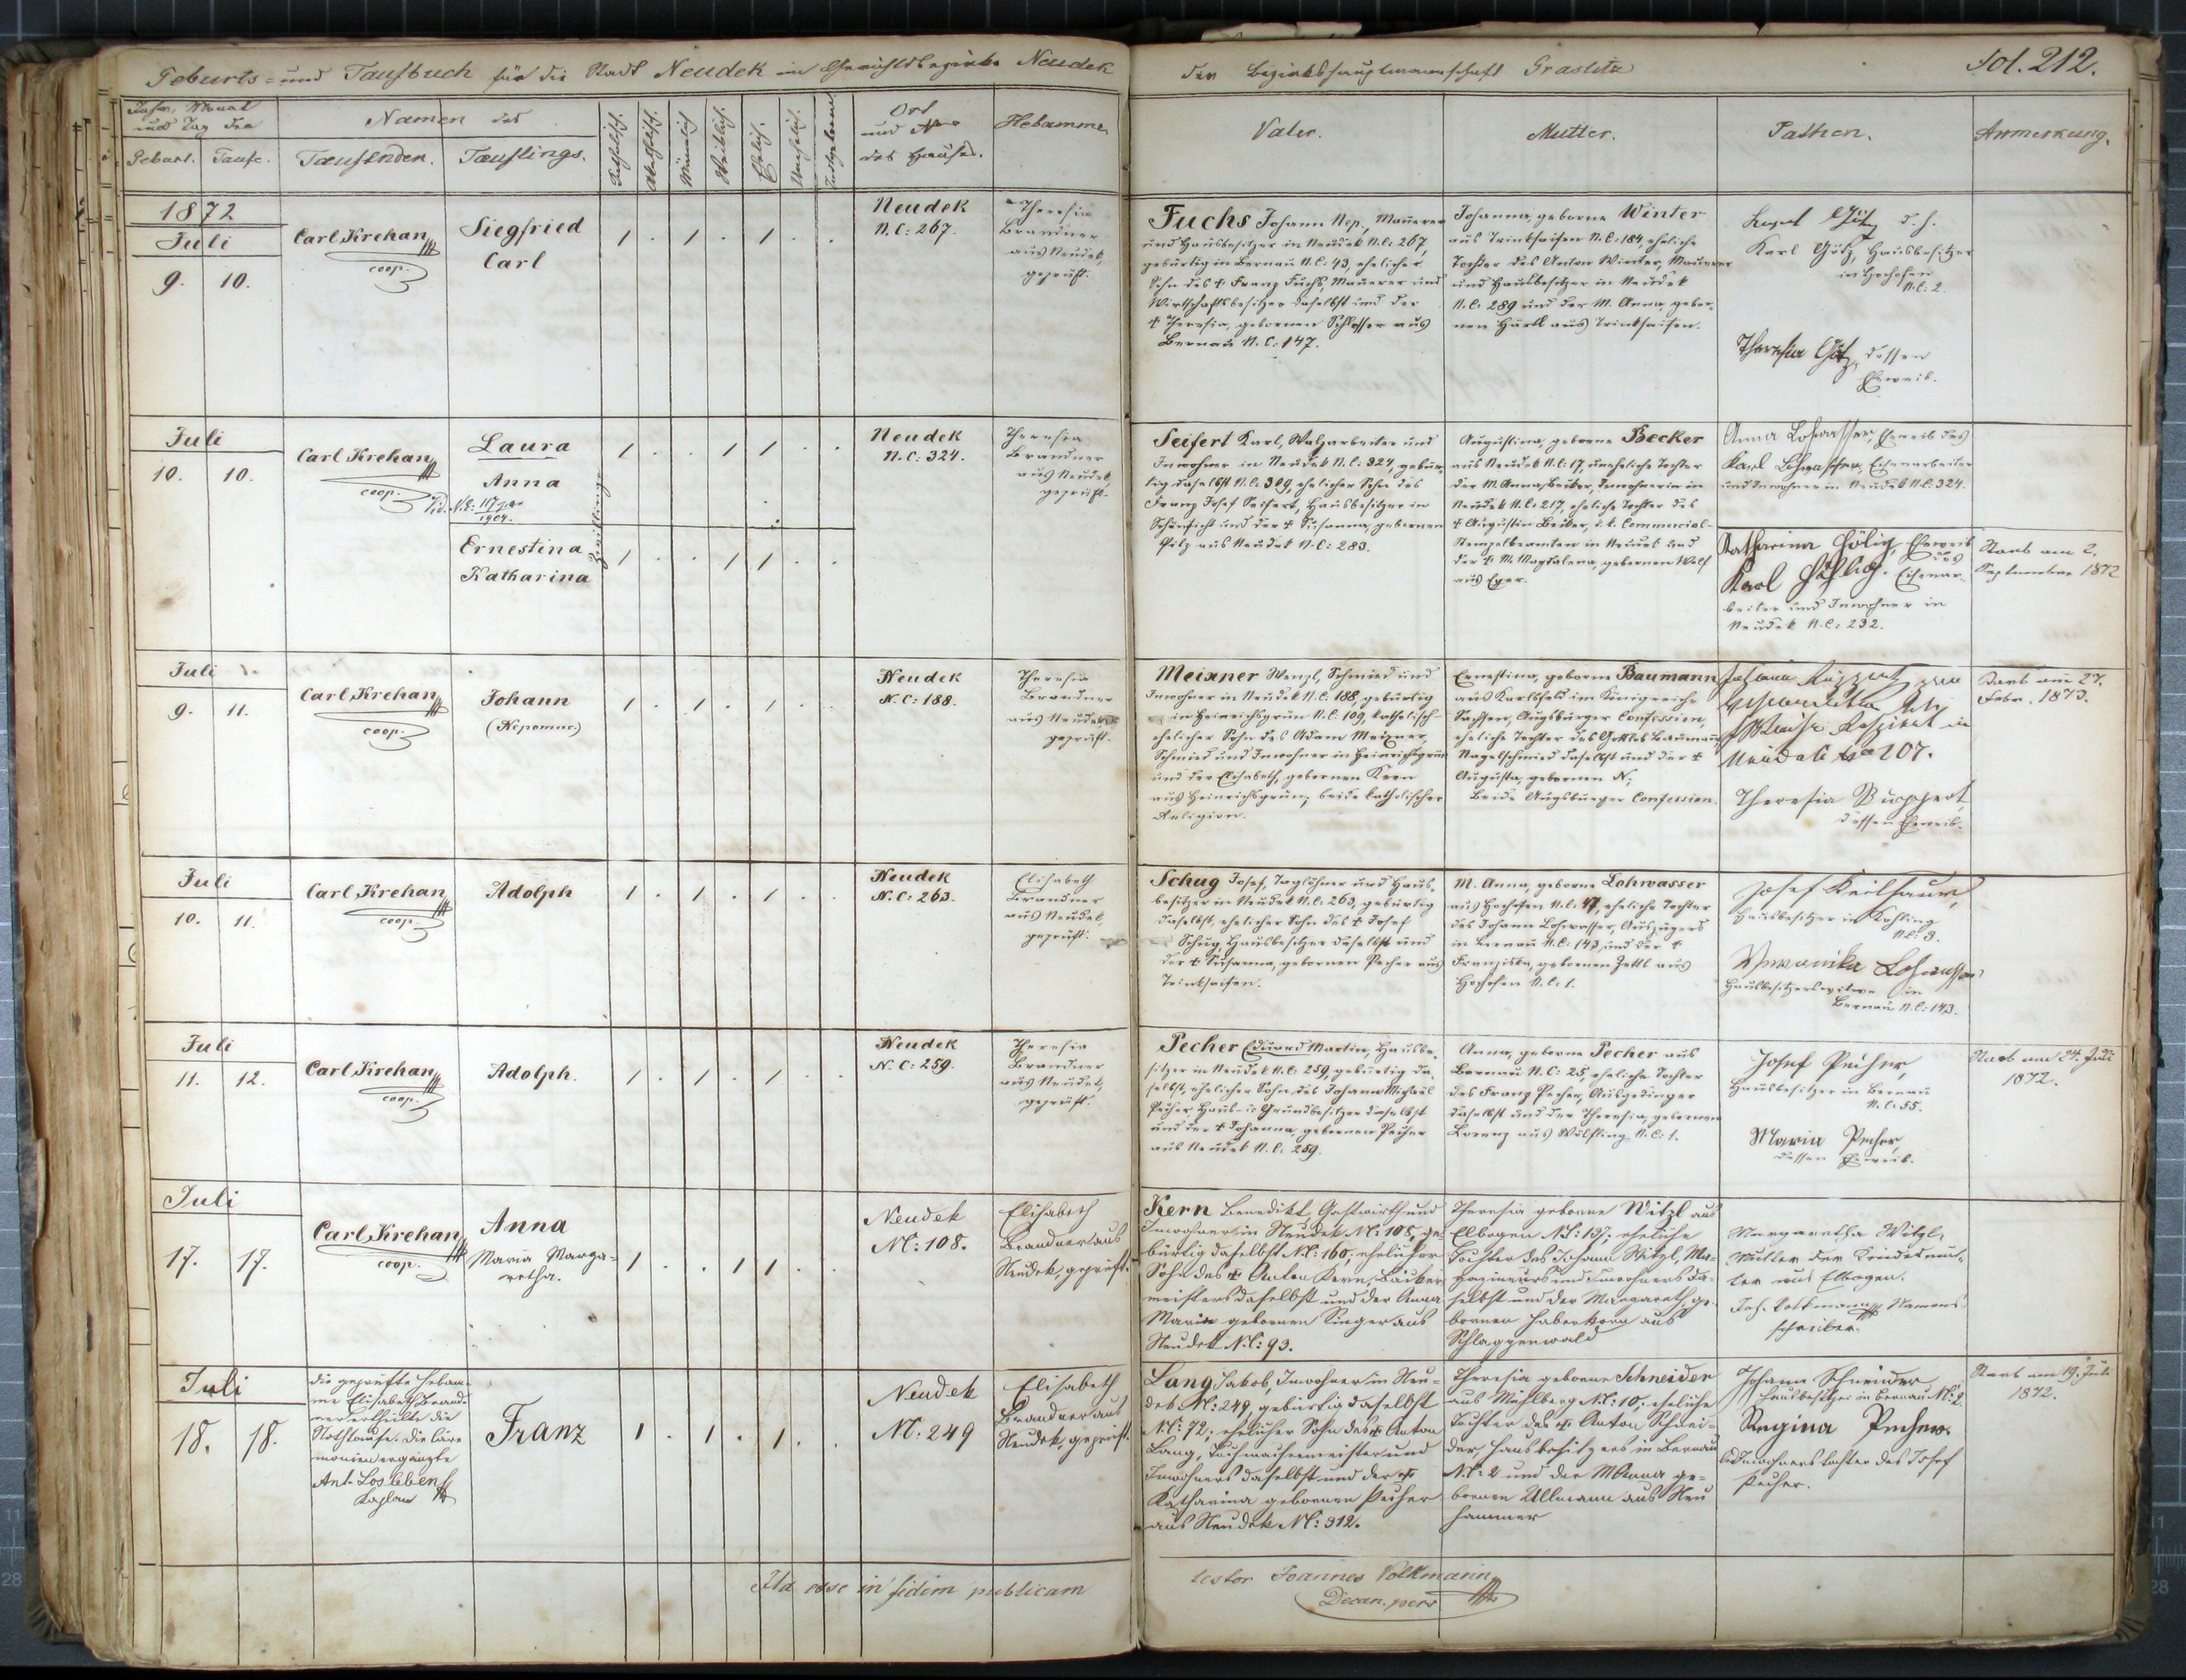 Geburts- und Taufbuch für die Stadt Neudek im Gerichtsbezirke Neudek
der Bezirkshauptmannschaft Graslitz
Fol. 212.
Jahr, Monat
und Tag der
Geburt. Taufe.
Namen des
Taufenden. Täuflings.
Katholisch.
Akatholisch.
Männlich
Weiblich.
Ehelich.
Unehelich.
Todtgeborne
Ort
und Nro
des Hauses.
Hebamme.
Vater.
Mutter.
Pathen.
Anmerkung.
1872
Juli
9. 10.
Carl Krehan
coop.
Siegfried
Carl
1 . 1 . 1 . .
Neudek
N. C: 267.
Theresia
Brandner
aus Neudek,
geprüft.
Fuchs Johann Nep., Maurer
und Hausbesitzer in Neudek N.C: 267,
gebürtig in Bernau N.C: 43, ehelicher
Sohn des † Franz Fuchs, Maurer und
Wirtschaftsbesitzer daselbst und der
† Theresia, gebornen Schlosser aus
Bernau N.C: 147.
Johanna, geborne Winter
aus Trinkseifen N.C: 184, eheliche
Tochter des Anton Winter, Maurer
und Hausbesitzer in Neudek
N.C: 289 und der M. Anna, gebor-
nen Härtl aus Trinkseifen.
Karl Götz, Hausbesitzer
in Hochofen
N.C: 2.
Theresia Götz, dessen
Eheweib.
Juli
10. 10.
Carl Krehan
coop.
Laura
Anna
Vid. N.E: 117
1904.
Ernestina
Katharina
Zwillinge
1 . . 1 1 . .
1 . . 1 1 . .
Neudek
N. C: 324.
Theresia
Brandner
aus Neudek,
geprüft.
Seifert Karl, Walzarbeiter und
Inwohner in Neudek N.C: 324, gebür-
tig daselbst N.C: 309, ehelicher Sohn des
Franz Josef Seifert, Hausbesitzer in
Schönlicht und der † Susanna, gebornen
Pilz aus Neudek N.C: 283.
Augustina, geborne Becker
aus Neudek N.C: 17, uneheliche Tochter
der M. Anna Becker, Inwohnerin in
Neudek N.C: 217, eheliche Tochter des
† Augustin Becker, k.k. Commercial-
Stempelbeamten in Neudek und
der † M. Magdalena, gebornen Wolf
aus Eger.
Anna Lohwasser, Eheweib des
Karl Lohwasser, Eisenarbeiter
und Inwohner in Neudek N.C: 324.
Katharina Hölig, Eheweib
des
Karl Eisenar-
beiter und Inwohner in
Neudek N.C: 232.
Starb am 2.
September 1872
Juli
9. 11.
Carl Krehan
coop.
Johann
(Nepomuc)
1 . 1 . 1 . .
Neudek
N. C: 188.
Theresia
Brandner
aus Neudek,
geprüft.
Meixner Wenzl, Schmied und
Inwohner in Neudek N.C: 188, gebürtig
in Heinrichsgrün N.C: 109, katholisch-
ehelicher Sohn des Adam Meixner,
Schmied und Inwohner in Heinrichsgrün
und der Elisabeth, gebornen Kern
aus Heinrichsgrün, beide katholischer
Religion.
Ernestina, geborne Baumann
aus Karlsfeld im Königreiche
Sachsen, Augsburger Confession,
eheliche Tochter des Gottlob Baumann
Nagelschmied daselbst und der †
Augusta, gebornen N;
Beide Augsburger Confession.
Neudek No 207.
Theresia Ruppert,
dessen Eheweib.
Starb am 27.
Febr. 1873.
Juli
10. 11.
Carl Krehan
coop.
Adolph
1 . 1 . 1 . .
Neudek
N. C: 263.
Elisabeth
Brandner
aus Neudek,
geprüft.
Schug Josef, Taglöhner und Haus-
besitzer in Neudek N.C: 263, gebürtig
daselbst, ehelicher Sohn des † Josef
Schug, Hausbesitzer daselbst und
der † Susanna, gebornen Pecher aus
Trinkseifen.
M. Anna, geborne Lohwasser
aus Hochofen N.C: 17, eheliche Tochter
des Johann Lohwasser, Auszügers
in Bernau N.C: 143 und der †
Franziska, gebornen Zettl aus
Hochofen N.C: 1.
Josef Keilhauer,
Hausbesitzer in Kohling
N.C: 3.
Veronika Lohwasser
Hausbesitzerswitwe in
Bernau N.C: 143.
Juli
11. 12.
Carl Krehan
coop.
Adolph.
1 . 1 . 1 . .
Neudek
N. C: 259.
Theresia
Brandner
aus Neudek,
geprüft.
Pecher Eduard Martin, Hausbe-
sitzer in Neudek N.C: 259, gebürtig da-
selbst, ehelicher Sohn des Johann Michael
Pecher Haus- u Grundbesitzer daselbst
und der † Johanna, gebornen Pecher
aus Neudek N.C: 259.
Anna, geborne Pecher aus
Bernau N.C: 25, eheliche Tochter
des Franz Pecher, Ausgedinger
daselbst und der Theresia, gebornen
Lorenz aus Wölfling N.C: 1.
Josef Pecher,
Hausbesitzer in Bernau
N.C: 55.
Maria Pecher,
dessen Eheweib.
Starb am 24. Juli
1872.
Juli
17. 17.
Carl Krehan
coop.
Anna
Maria Marga-
retha.
1 . . 1 1 . .
Neudek
NC: 108.
Elisabeth
Brandner aus
Neudek, geprüft.
Kern Benedikt, Gastwirth und
Inwohner in Neudek NC: 108, ge-
bürtig daselbst NC: 160, ehelicher
Sohn des † Anton Kern, Bäcker-
meisters daselbst und der Anna
Maria gebornen Singer aus
Neudek N.C: 93.
Theresia geborne Witzl aus
Elbogen NC: 137, eheliche
Tochter des Johann Witzl, Ma-
gazineurs und Inwohners da-
selbst und der Margareth, ge-
bornen Haberkorn aus
Schlaggenwald
Margaretha Witzl,
Mutter der Kindesmut-
ter aus Elbogen.
Joh. Volkmann Namens-
schreiber.
Juli
18. 18.
Die geprüfte Hebam-
me Elisabeth Brand-
ner ertheilte die
Nothtaufe. Die Cäre-
monien ergänzte
Ant. Losleben
Kaplan
Franz
1 . 1 . 1 . .
Neudek
NC: 249
Elisabeth
Brandner aus
Neudek, geprüft.
Lang Jakob, Inwohner in Neu-
dek NC: 249, gebürtig daselbst
NC: 72, ehelicher Sohn des † Anton
Lang, Tuchmachermeister und
Inwohners daselbst und der †
Katharina gebornen Pecher
aus Neudek NC: 312.
Theresia geborne Schneider
aus Mühlberg NC: 10, eheliche
Tochter des † Anton Schnei-
der, Hausbesitzers in Bernau
NC: 2 und der MAnna ge-
bornen Ullmann aus Neu
hammer
Johann Schneider
Hausbesitzer in Bernau NC: 2.
Regina Pecher.
Inwohnerstochter des Josef
Pecher.
Starb am 19. Juli
1872.
Ita esse in fidem publicam
testor Joannes Volkmann
Decan. pers